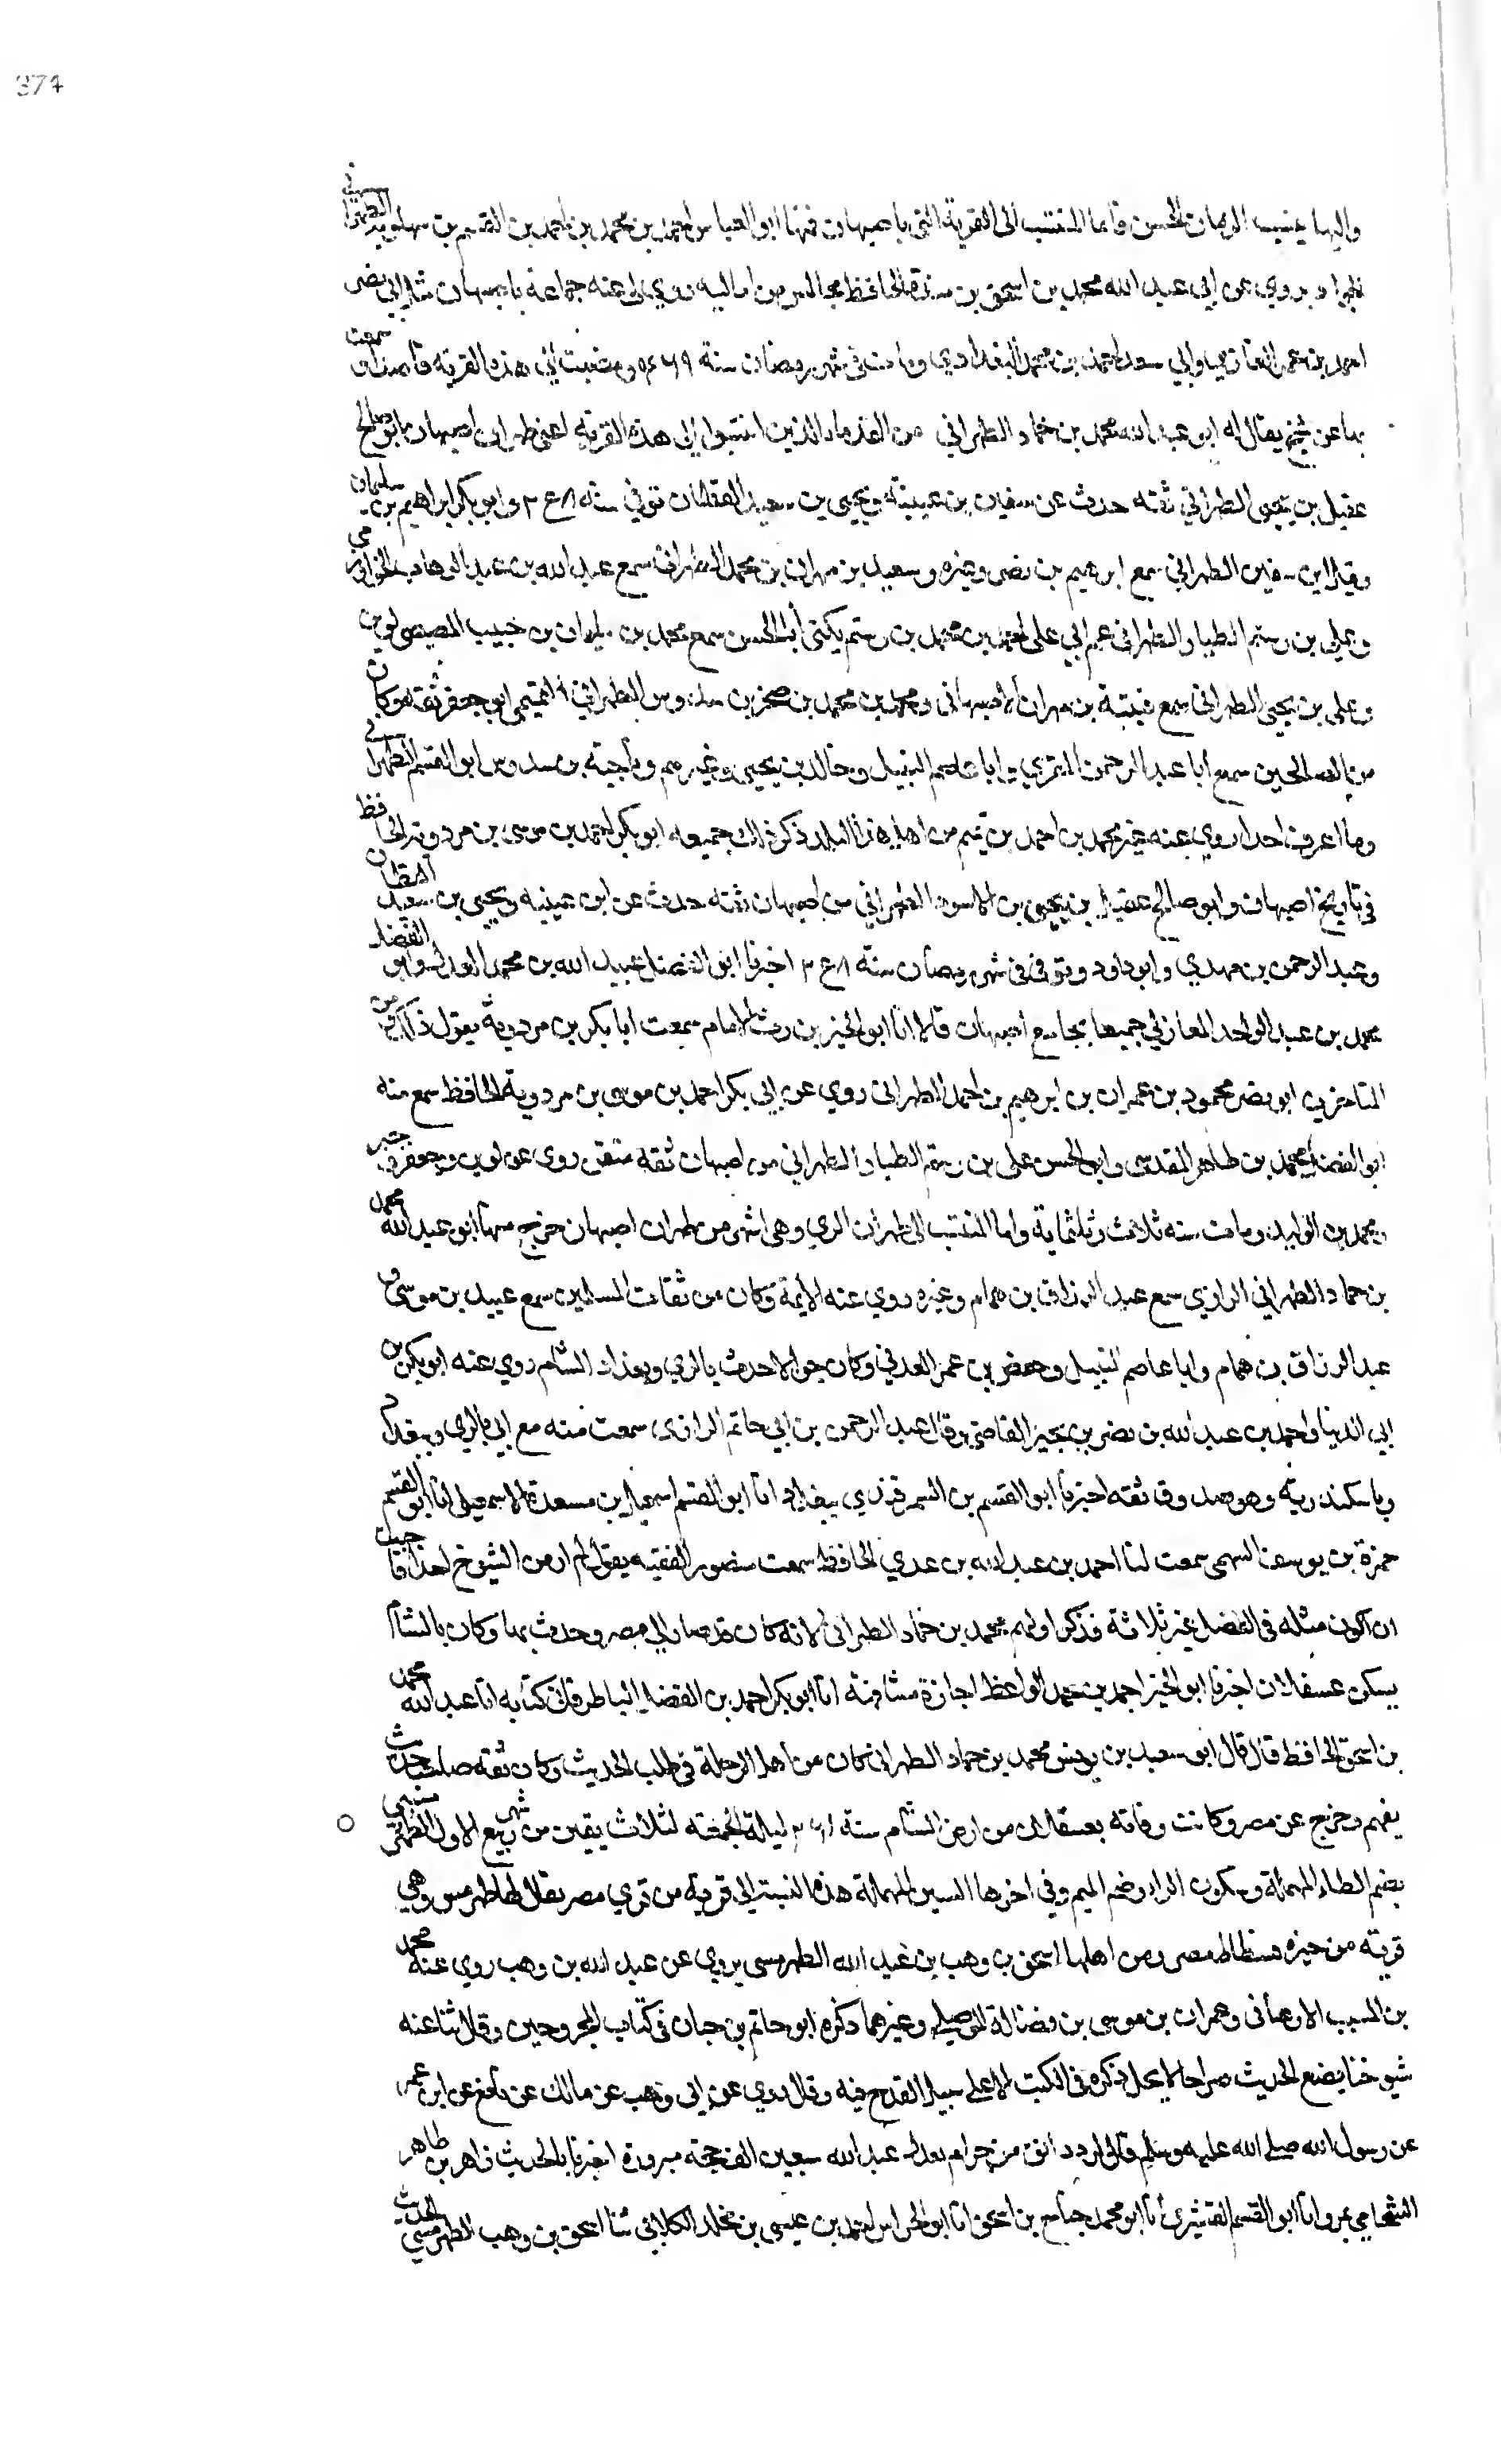 374
واليها ينسب الرمان الحسن واما المنتسب الى القرية التي باصبهان فمنها ابو العباس احمد بن محمد بن احمد بن القسم بن سهلويه الطهراني
يروي عن ابي عبد الله محمد بن اسحق بن مندة الحافظ مجالس من اماليه روى لي عنه جماعة باصبهان مثل ابي نصر
احمد بن عمر الغازي وابي سعد احمد بن محمد البغدادي ومات في شهر رمضان سنة ومضيت الى هذه القرية قاصدا و سمعت
بها عن شيخ يقال له ابو عبد الله محمد بن حماد الطهراني من القدماء الذين انتسبوا الى هذه القرية اعني طهران اصبهان ابو صالح
عقيل بن يحيى الطهراني ثقه حدث عن سفين بن عيينة ويحيى بن سعيد القطان توفي سنه وابو بكر ابراهيم بن سليمان
وقيل ابن سفين الطهراني سمع ابرهيم بن نصر وغيره وسعيد بن مهران بن محمد الطهراني سمع عبد الله بن عبد الوهاب الخوارزمي
وعلي بن رستم الطيار الطهراني عم ابي على احمد بن محمد بن رستم يكنى أبا الحسن سمع محمد بن سليمان بن حبيب المصيصي لوين
وعلي بن يحيى الطهراني سمع قتيبة بن مهران الاصبهاني ومحمد بن محمد بن صخر بن سدوس الطهراني التميمي ابو جعفر ثقه وكان
من الصالحين سمع أبا عبد الرحمن المقري وابا عاصم النبيل وخالد بن يحيى وغيرهم وناجية بن سدوس ابو القسم الطهراني
وما اعرف احدا روي عنه غير محمد بن احمد بن تميم من اهل هذا البلد ذكر ذلك جميعه ابو بكر احمد بن موسى بن مردويه الحافظ
في تاريخ اصبهان وابو صالح عقيل بن يحيى بن الاسود الطهراني من اصبهان ثقه حدث عن ابن عيينه ويحيى بن سعيد القطان
وعبد الرحمن بن مهدي وابو داود وتوفي في شهر رمضان سنة اخبرنا ابو الفضل عبيد الله بن محمد العدل وابو الفضل
محمد بن عبد الواحد المغازلي جميعا بجامع اصبهان قالا انا ابو الخير بن الامام سمعت ابا بكر بن مردوية يقول ذلك ومن
المتاخرين ابو نصر محمود بن عمران بن ابرهيم بن احمد الطهراني روي عن ابي بكر احمد بن موسى بن مردوية الحافظ سمع منه
ابو الفضل محمد بن طاهر المقدسى وابو الحسن علي بن رستم الطيار الطهراني من اصبهان ثقه متقن روى عن لوين وجعفر
ومحمد بن الوليد ومات سنه ثلاث وثلثماية واما المنتسب الى طهران الري وهي اشهر من طهران اصبهان خرج منها ابو عبد الله محمد
بن حماد الطهراني الرازي سمع عبد الرزاق بن همام وغيره روي عنه الايمة وكان من ثقات المسلمين سمع عبيد بن موسى و
عبد الرزاق بن همام وابا عاصم النبيل وحفص بن عمر العدني وكان جوالا حدث بالري وبغداد والشام روي عنه ابو بكر بن
ابي الدنيا واحمد بن عبد الله بن نصر بن بجير القاضي وقال عبد الرحمن بن ابي حاتم الرازى سمعت منه مع ابي بالري وبغداد
وباسكندرية وهو صدوق ثقه اخبرنا ابو القسم بن السمرقندي ببغداد انا ابو القسم اسمعيل بن مسعدة الاسمعيلي انا ابو القسم
حمزة بن يوسف السهمي سمعت انا احمد عبد الله بن عدي الحافظ سمعت منصور الفقيه يقول لم ار من الشيوخ احدا فاحببت
ان اكون مثله في الفضل غير ثلاثة فذكر اولهم محمد بن حماد الطهراني لانه كان قد صار الى مصر وحدث بها وكان بالشام
يسكن عسقلان اخبرنا ابو الخير احمد بن محمد الواعظ اجازة مشافهة انا ابو بكر احمد بن الفضل الباطرقاني في كتابه انا عبد الله محمد
بن اسحق الحافظ قال قال ابو سعيد بن يونس محمد بن حماد الطهراني كان من اهل الرحلة في طلب الحديث وكان ثقه صاحب حديث
يفهم وخرج عن مصر وكانت وفاته بعسقلان من ارض الشام سنة ليلة الجمعة لثلاث بقين من شهر ربيع الاول الطهرمسي
بضم الطاء المهملة وسكون الراء وضم الميم وفي اخرها السين المهملة هذه النسبة الى قرية من قرى مصر يقال لها طهرمس وهي
قرية من جيزه فسطاط مصر ومن اهلها اسحق بن وهب بن عبد الله الطهرمسى يروي عن عبد الله بن وهب روي عنه محمد
بن المسيب الارغياني وعمران بن موسى بن فضالة الموصلي وغيرهما ذكره ابو حاتم بن حبان في كتاب المجروحين وقال ثنا عنه
شيوخنا يضع الحديث صراحا لا يحل ذكره في الكتب الا على سبيل القدح فيه وقال روي عن ابن وهب عن مالك عن نافع عن ابن عمر
عن رسول الله صلى الله عليه وسلم قال لرد دانق من حرام يعدل عند الله سبعين الف حجة مبرورة اخبرنا بالحديث زاهر بن طاهر
الشحامي بمرو انا ابو القسم القشيري انا ابو محمد جناح بن اسحق انا ابو احمد بن عيسى بن مخلد الكلابي ثنا اسحق بن وهب الطهرمسي الحديث